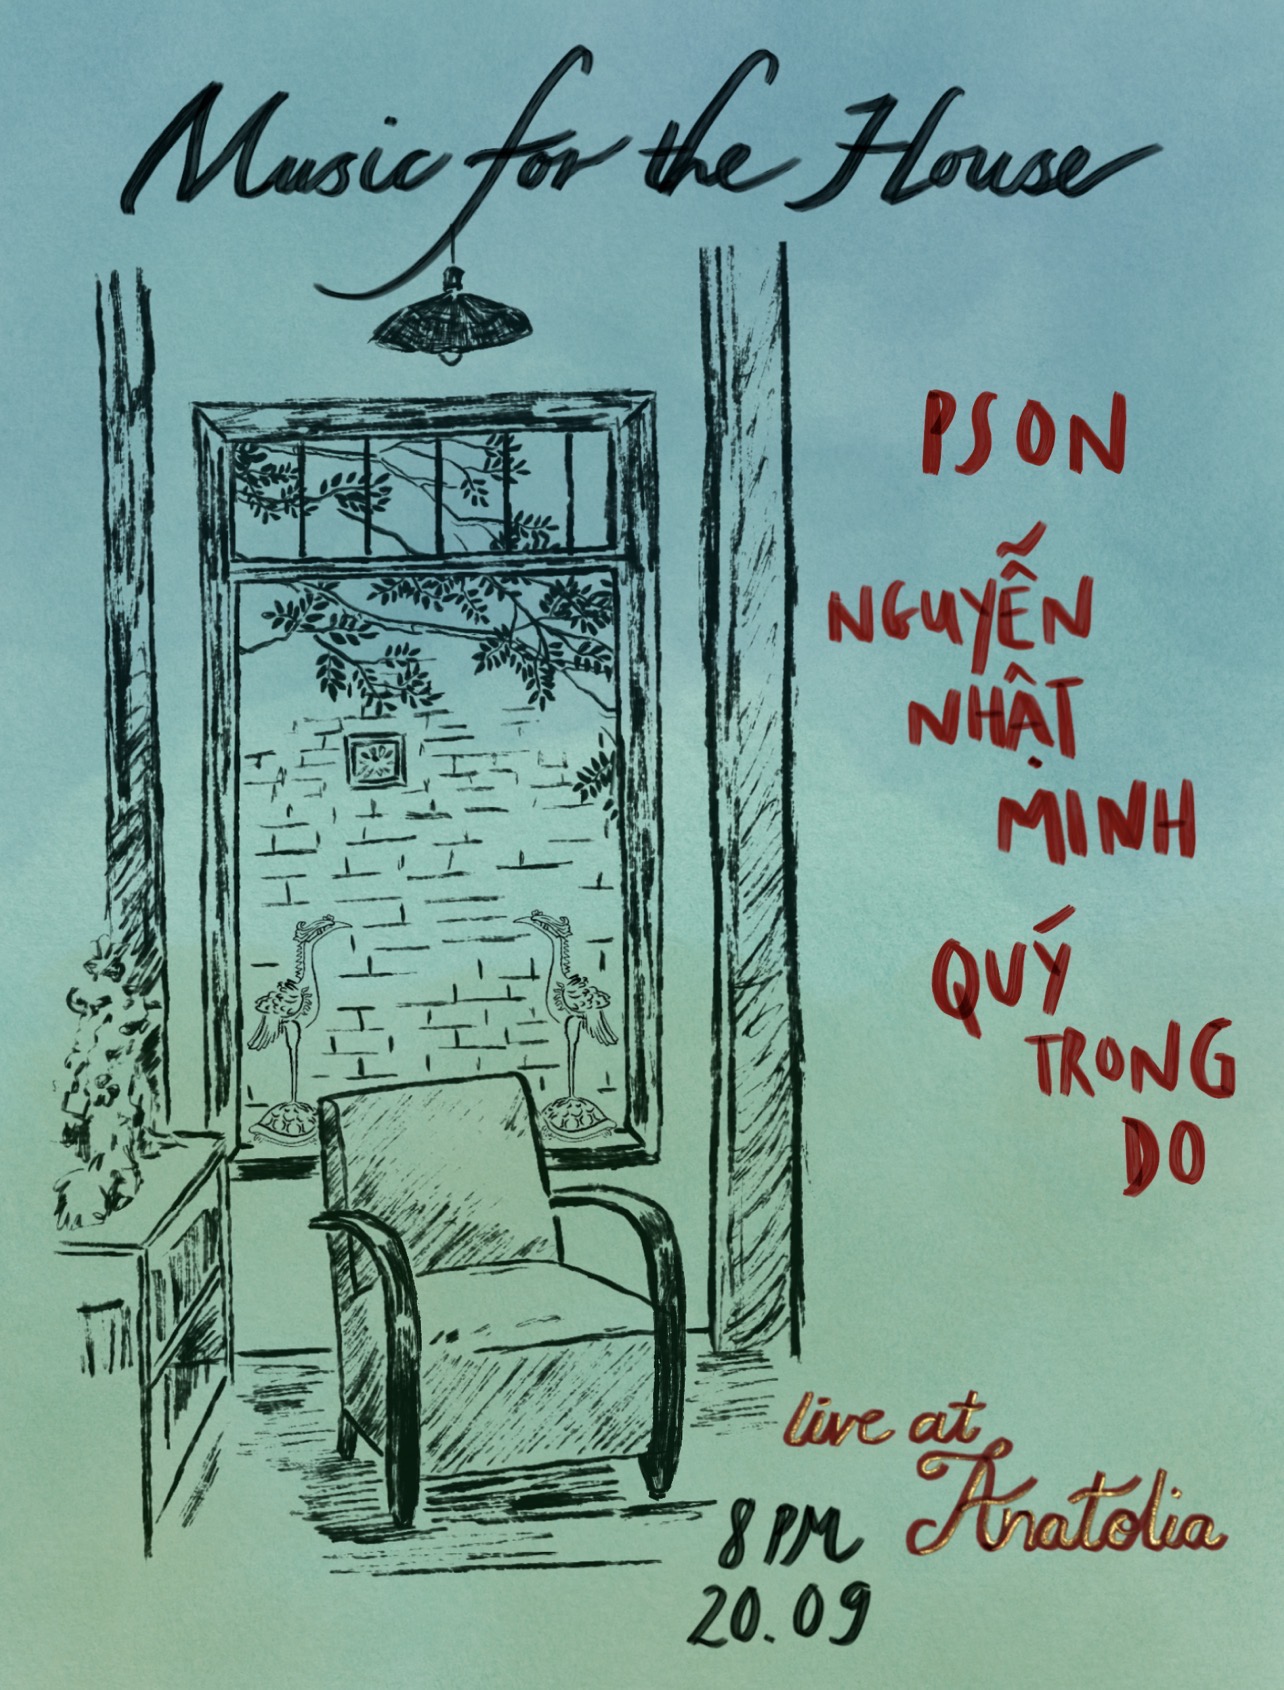 Music for the House
PSON
NGUYỄN
NHẬT
MINH
QUÝ
TRONG
DO
live at
Anatolia
8 PM
20.09